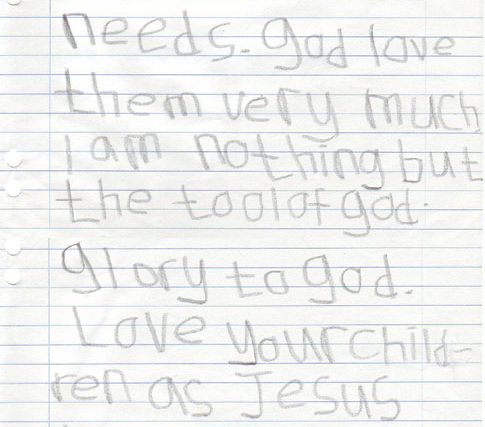 needs. god love
them very much
I am nothing but
the tool of god.
glory to god.
Love your child-
ren as Jesus